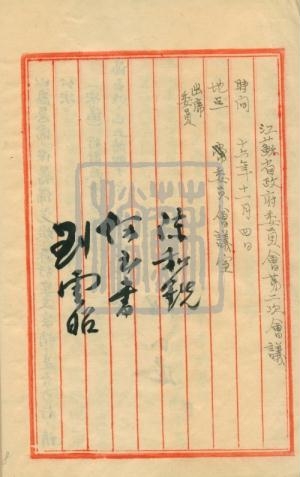 江蘇省政府委員會第二次會議
時間 十六年十一月四日
地点 本委員會議室
出席委員
陳和銑
何玉書
劉雲昭